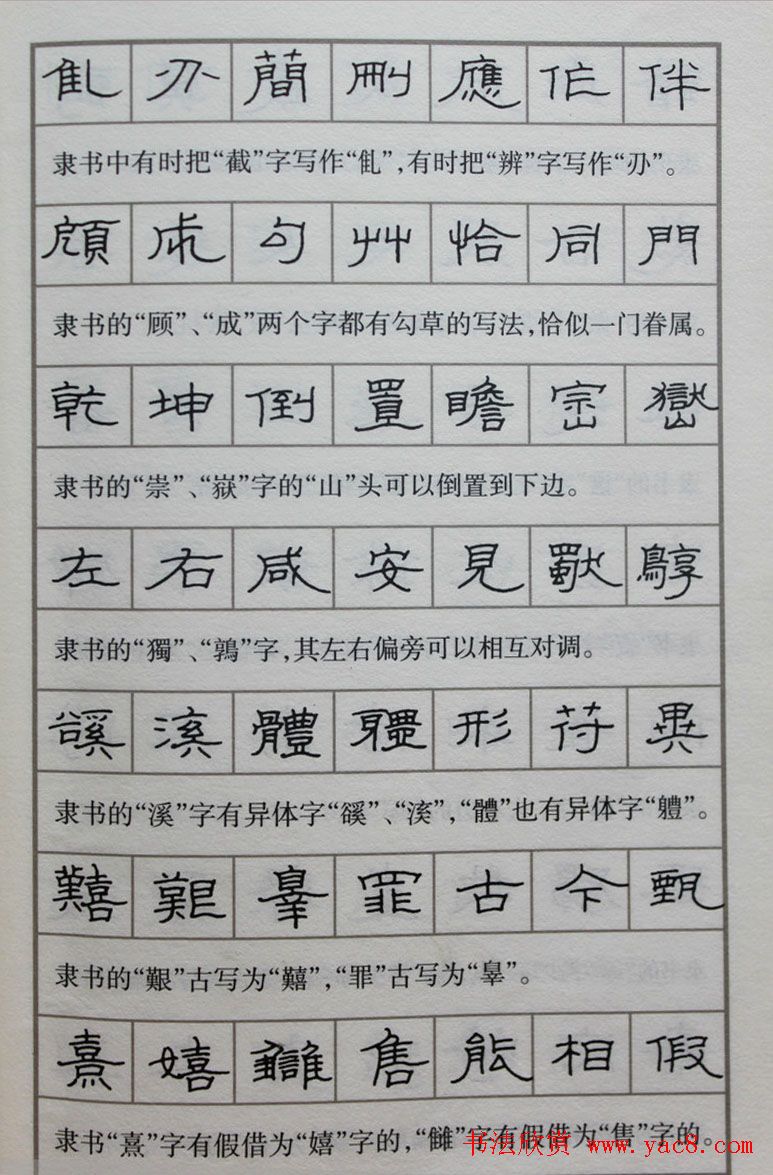 亂 刅 蕳 刪 應 伫 伴
隶书中有时把“截”字写作“”,有时把“辨”字写作“刅”。
頋 成 勾 艸 恰 同 門
隶书的“顾”、“成”两个字都有勾草的写法,恰似一门眷属。
乾 坤 倒 置 瞻 崈 嶽
隶书的“崇”、“嶽”字的“山”头可以倒置到下边。
左 右 咸 安 見
隶书的“獨”、“鶉”字,其左右偏旁可以相互对调。
豀 渓 體 軆 形 符 異
隶书的“溪”字有异体字“豀”、“渓”,“體”也有异体字“軆”。
囏 艱 辠 罪 古 今 甄
隶书的“艱”古写为“囏”,“罪”古写为“辠”。
熹 嬉 雠 售 能 相 假
隶书“熹”字有假借为“嬉”字的,“雠”字有假借为“售”字的。
书法欣赏 www.yac8.com